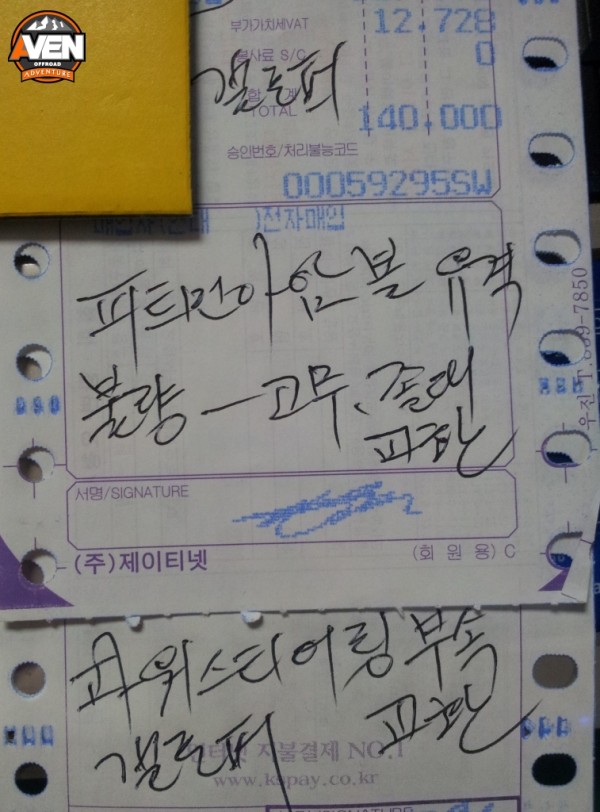 AVEN
OFFROAD
ADVENTURE
부가가치세VAT 12.728
봉사료 S/C 0
갤로퍼
합 계
TOTAL 140.000
승인번호/처리불능코드
00059295SW
)전자매입
피티먼아암 볼 유격
불량 - 고무, 졸대
교환
우진 T.
-7850
서명/SIGNATURE
(주)제이티넷
(회 원 용) C
파워스티어링 부속
갤로퍼 교환
인터넷 지불결제 NO.1
www.kspay.co.kr